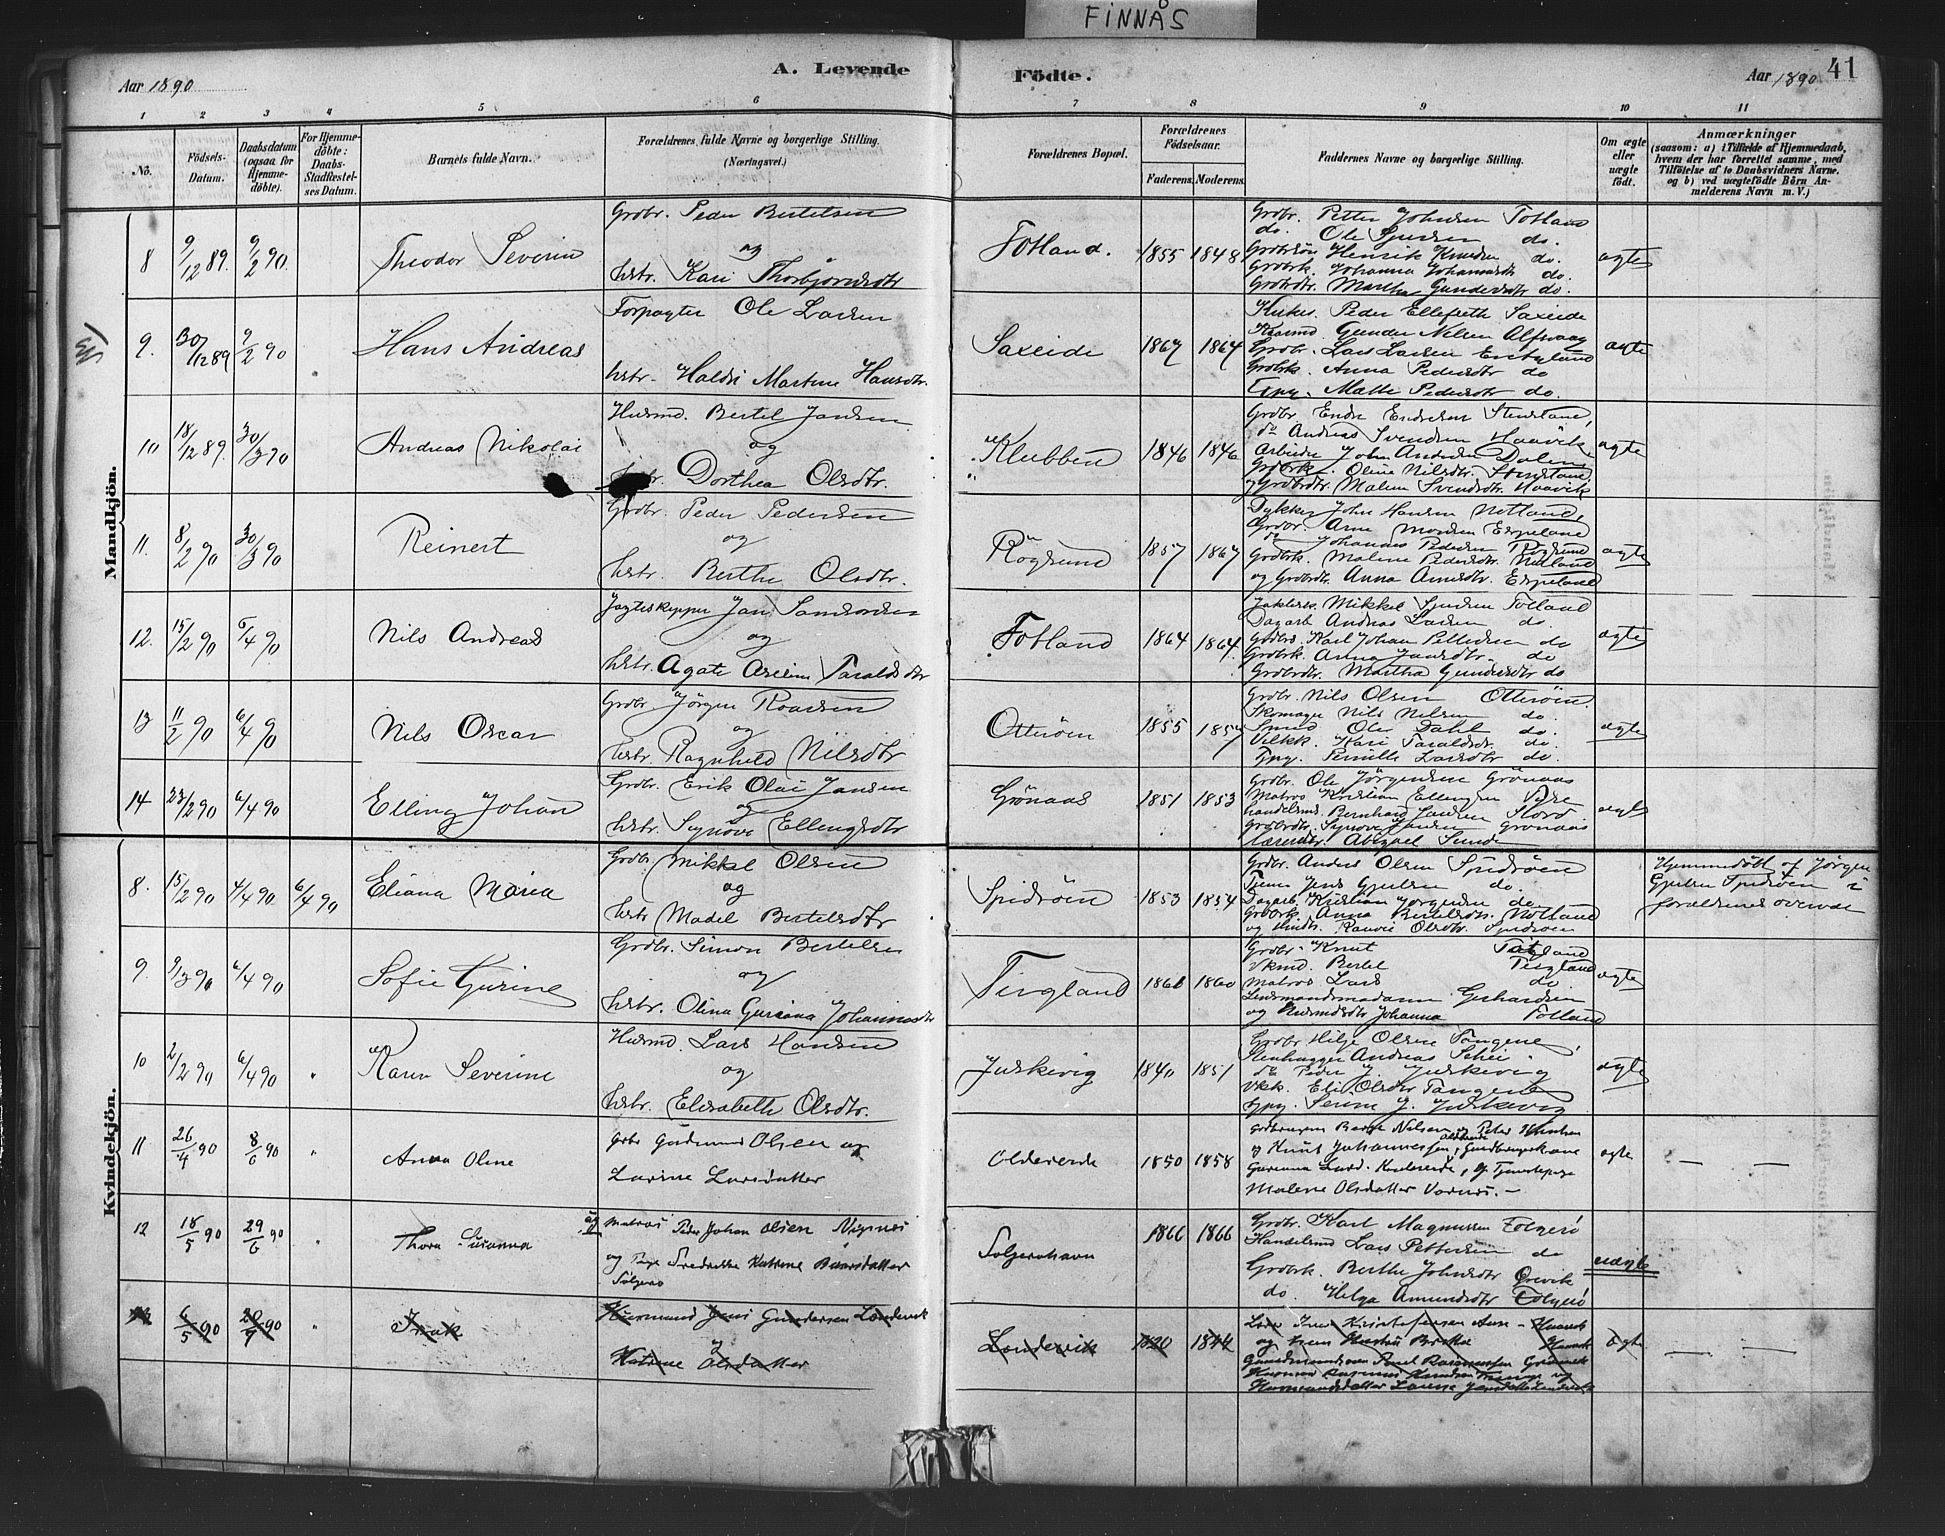 FINNÅS
Aar 1890
A. Levende
Födte.
Aar 1890
41
1 2 3 4 5 6 7 8 9 10 11
No.
Födsels-Datum.
Daabsdatum (ogsaa for Hjemme-döbte).
For Hjemme-döbte: Daabs-Stadfæstel-ses Datum.
Barnets fulde Navn.
Forældrenes fulde Navne og borgerlige Stilling. (Næringsvei.)
Forældrenes Bopæl.
Forældrenes Födselsaar.
Faderens. Moderens.
Faddernes Navne og borgerlige Stilling.
Om ægte eller uægte födt.
Anmærkninger
(saasom: a) i Tilfælde af Hjemmedaab, hvem der har forrettet samme, med Tilföielse af to Daabsvidners Navne, og b) ved uægtefödte Börn An-melderens Navn m. V.)
Mandkjön.
8 9/12 89. 9/2 90. Theodor Severin
Grdbr. Peder Bertelsen
og
hstr. Kari Thorbjørnsdtr
Totland. 1855 1848
Grdbr. Petter Johnsen Totland
do. Ole Sjursen do.
Grdbrsön Henrik Knudsen do.
Grdbrk. Johanna Johannesdtr do.
Grdbrdtr. Martha Gundersdtr do.
ægte
9. 30/12 89 9/2 90 Hans Andreas
Forpagter Ole Larsen
hstr. Haldri Martine Hansdtr.
Saxeide 1867 1864
Kirkes. Peder Ellefseth Saxeide
Gunder Nelsen Alfsvaag
Grdbr. Lars Larsen
Grdbrk. Anna Pedersdtr do
Tjpg. Malle Pedersdtr do.
ægte
10 18/12 89. 30/3 90 Andreas Nikolai
Husmd. Bertel Jansen
og
hstr. Dorthea Olsdtr.
Klubben 1846 1846
Grdbr. Endre Endresen
do Andreas Svendsen Haavik
Arbeider John Andersen Dalen
Grdbrk. Oline Nilsdtr.
og Grdbrdtr. Malene Svendsdtr. Haavik
ægte
11. 8/2 90 30/3 90 Reinert
Grdbr. Peder Pedersen
og
hstr. Berthe Olsdtr.
Rögsund 1857 1867
Dykker John Hansen Notland,
Grdbr. Arne Monsen Espeland
do Johannes Pedersen Rögsund
Grdbrk. Malene Pedersdtr. Notland
og Grdbrdtr. Anna Arnesdtr. Espeland
ægte
12. 15/2 90 6/4 90 Nils Andreas
Jagteskipper Jan Samsonsen
og
hstr. Agate Taraldsdtr
Totland 1864 1864
Mikkel Sjursen Totland
Dagarb. Andreas Larsen do.
Karl Johan Pettersen do
Grdbrk. Anna Jansdtr. do
Grdbrdtr. Martha Gundersdtr do
ægte
13 11/2 90 6/4 90 Nils Oscar
Grdbr. Jörgen Roaldsen
og
hstr. Ragnhild Nilsdtr
Otteröen 1855 1857
Grdbr. Nils Olsen Otteröen.
Skomager Nils Nelsen do.
Smed Ole Dahl do.
Kari Taraldsdtr. do.
Tjpg. Pernille Larsdtr do.
ægte
14 23/2 90 6/4 90 Elling Johan
Grdbr. Erik Olai Jansen
og
hstr. Synove Ellingsdtr
Grönaas 1851 1853
Grdbr. Ole Jörgensen Grönaas
Matros Kristian Ellingsen
Handelsmd. Bernhard Jansen Stord
Grdbrdtr. Synove Jansen Grönaas
Abigael Sunde
ægte
Kvindekjön.
8. 15/2 90 4/4 90 6/4 90 Eliana Maria
Grdbr. Mikkel Olsen
og
hstr. Madel Bertelsdtr
Spidsöen 1853 1854
Grdbr. Anders Olsen Spidsöen
Tjener Jens Gjertsen do.
Dagarb. Kristian Jörgensen do.
Grdbrk. Anna Bertelsdtr. Notland
og Olsdtr. Spidsöen
Hjemmedöbt af Jörgen
Gjertsen Spidsöen i
forældrenes overvær
9. 9/3 90 6/4 90 Sofie Gurine
Grdbr. Simon Bertelsen
og
hstr. Olina Guriana Johannesdtr
Tisgland 1861 1860
Grdbr. Knut Tisgland
Bertel Tisgland
Matros Lars do.
Lensmandsmadam Gerhardsen
og Husmdsdtr Johanna Totland
ægte
10 2/2 90 6/4 90 " Karen Severine
Husmd. Lars Hansen
og
hstr. Elisabeth Olsdtr.
Juskevig 1840 1851
Grdbr Helje Olsen Tangene,
Stenhugger Andreas
do Peder J. Juskevig
Vkk. Eli Olsdtr Tangene
Tjpg. Serine J. Juskevig
ægte
11 26/4 90 8/6 90 " Anna Oline
Grbr Gudmund Olsen og
Larine Larsdatter
Oldereide 1850 1858
Gaardbrugerne Berge Nilsen, og Peter
og Knut Johannessen, Gaardbrugerkone
Guriana Larsd. og Tjenestepige
Malene Olsdatter Vornes. –
ægte — —
12 18/5 90 29/6 90 " Thora Susanna
Matros Peder Johan Olsen
og Pige Fredrikke Katrine Baarsdatter
Folgerö
Folgeröhavn 1866 1866
Grdbr. Karl Magnussen Folgerö
Handelsmd Lars Pettersen do
Grdbrk. Berthe Johnsdtr
do. Helga Amundsdtr Folgerö
uægte
6/5 90 Isak
Husmand Jens Gundersen Løndevik
og
Katrine Olsdatter
Løndervik 1820 1844
Husmandsdatter Larine Jensdatter
ægte — —